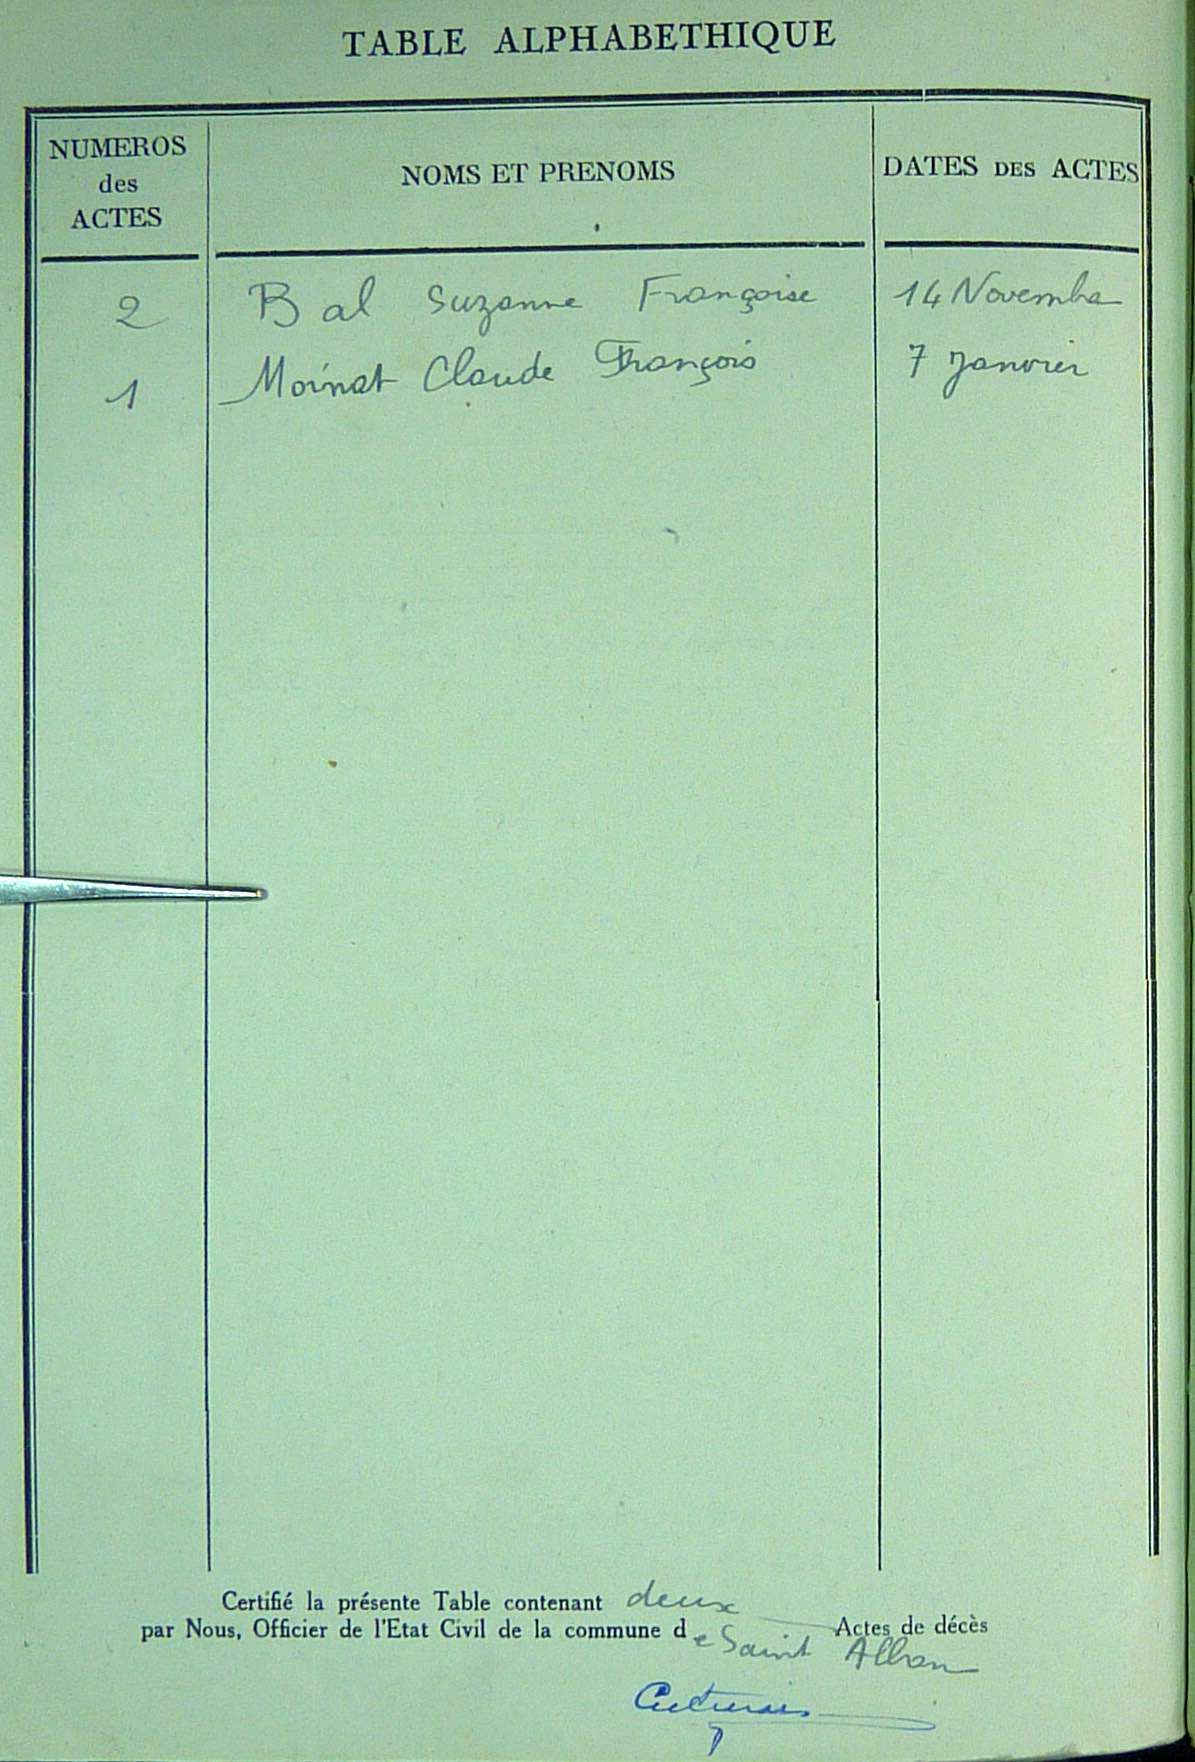 TABLE ALPHABETHIQUE
NUMEROS
des
ACTES
NOMS ET PRENOMS
DATES DES ACTES
2 Bal Suzanne Françoise 14 Novembre
1 Moinat Claude François 7 Janvier
Certifié la présente Table contenant deux Actes de décès
par Nous, Officier de l'Etat Civil de la commune de Saint Alban